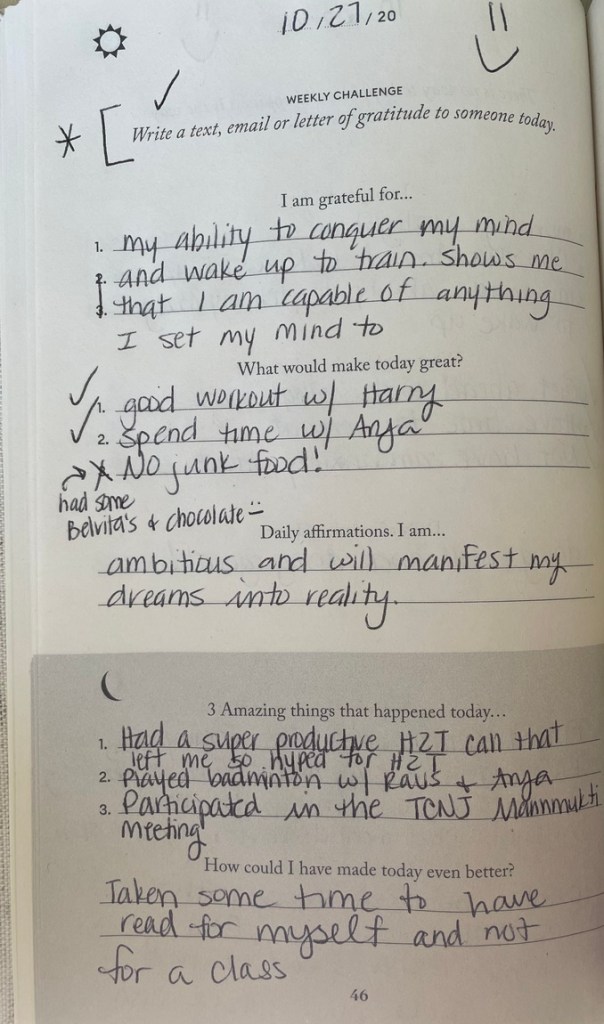 10/27/20
WEEKLY CHALLENGE
Write a text, email or letter of gratitude to someone today.
I am grateful for...
1. my ability to conquer my mind
2. and wake up to train. Shows me
3. that I am capable of anything
I set my mind to
What would make today great?
1. good workout w/ Harry
2. Spend time w/ Anja
No junk food!
had some
Belvita's & chocolate
Daily affirmations. I am...
ambitious and will manifest my
dreams into reality.
3 Amazing things that happened today...
1. Had a super productive H2I call that
left me so hyped for H2I
2. Played badminton w/ Ravs & Anja
3. Participated in the TCNJ Mannmukti
meeting
How could I have made today even better?
Taken some time to have
read for myself and not
for a class
46